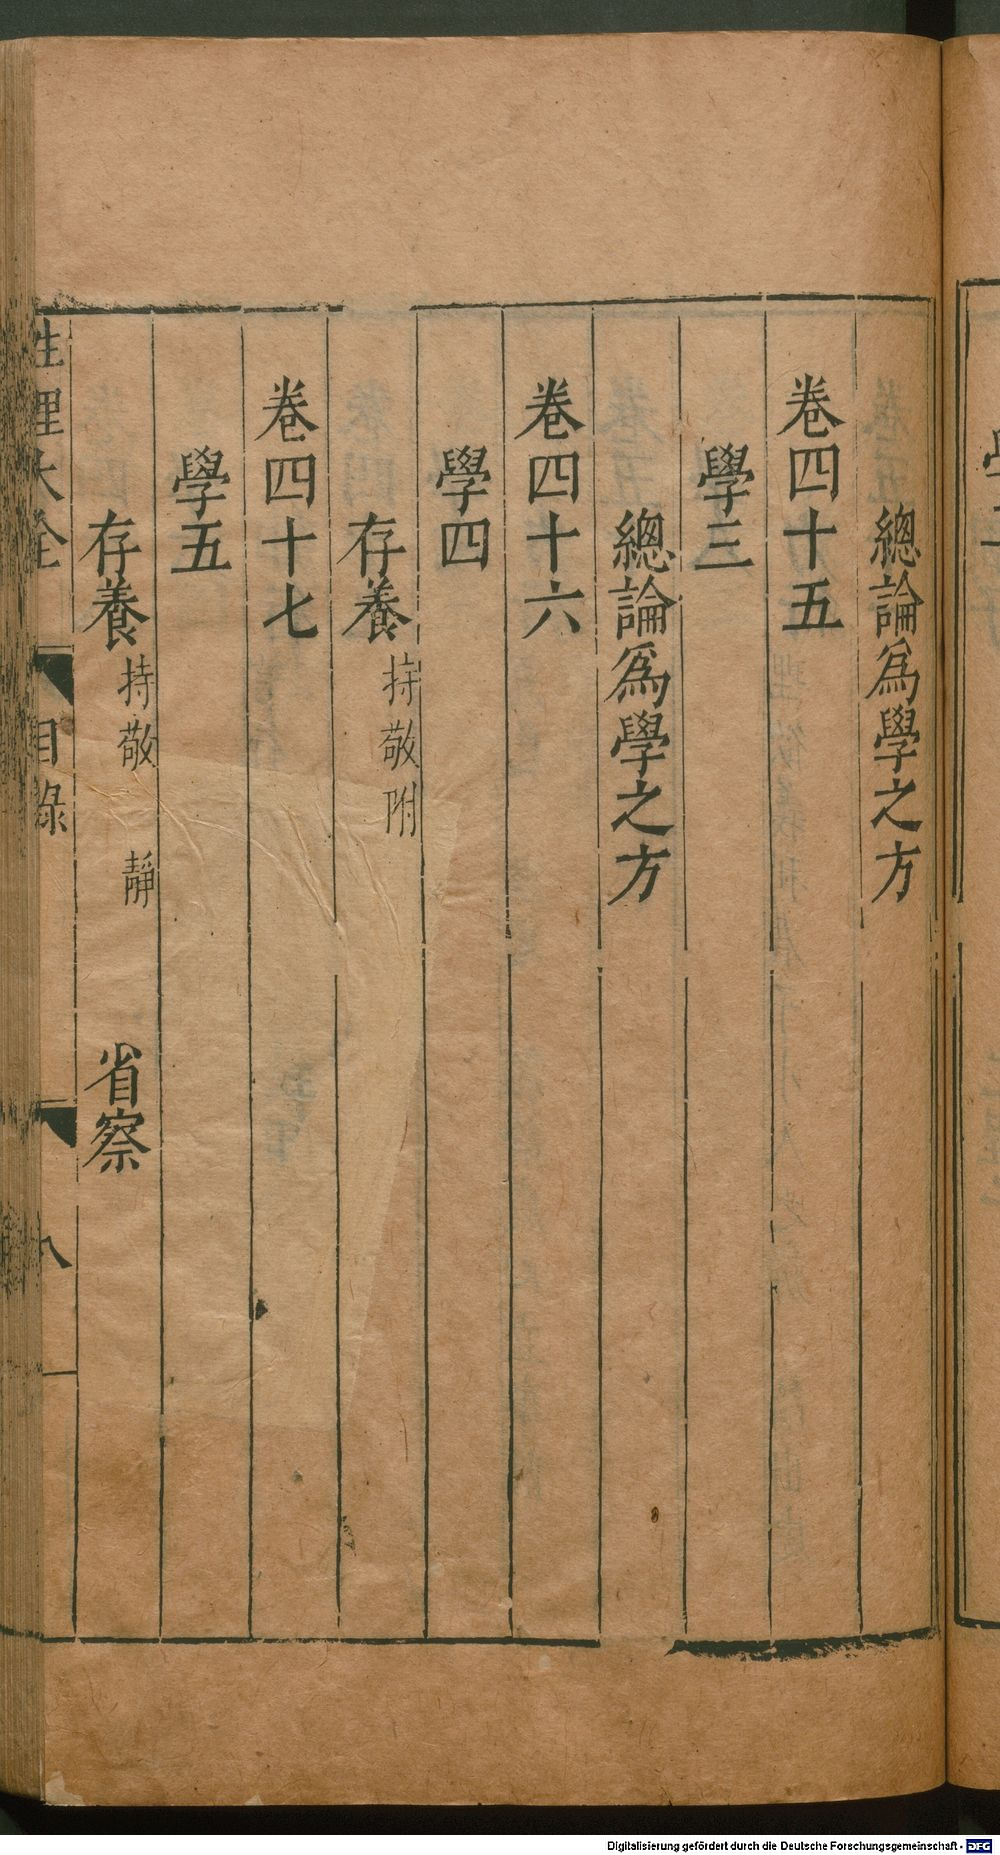 總論爲學之方
卷四十五
學三
總論爲學之方
卷四十六
學四
存養持敬附
卷四十七
學五
存養持敬 靜 省察
性理大全 目錄 八
Digitalisierung gefördert durch die Deutsche Forschungsgemeinschaft - DFG